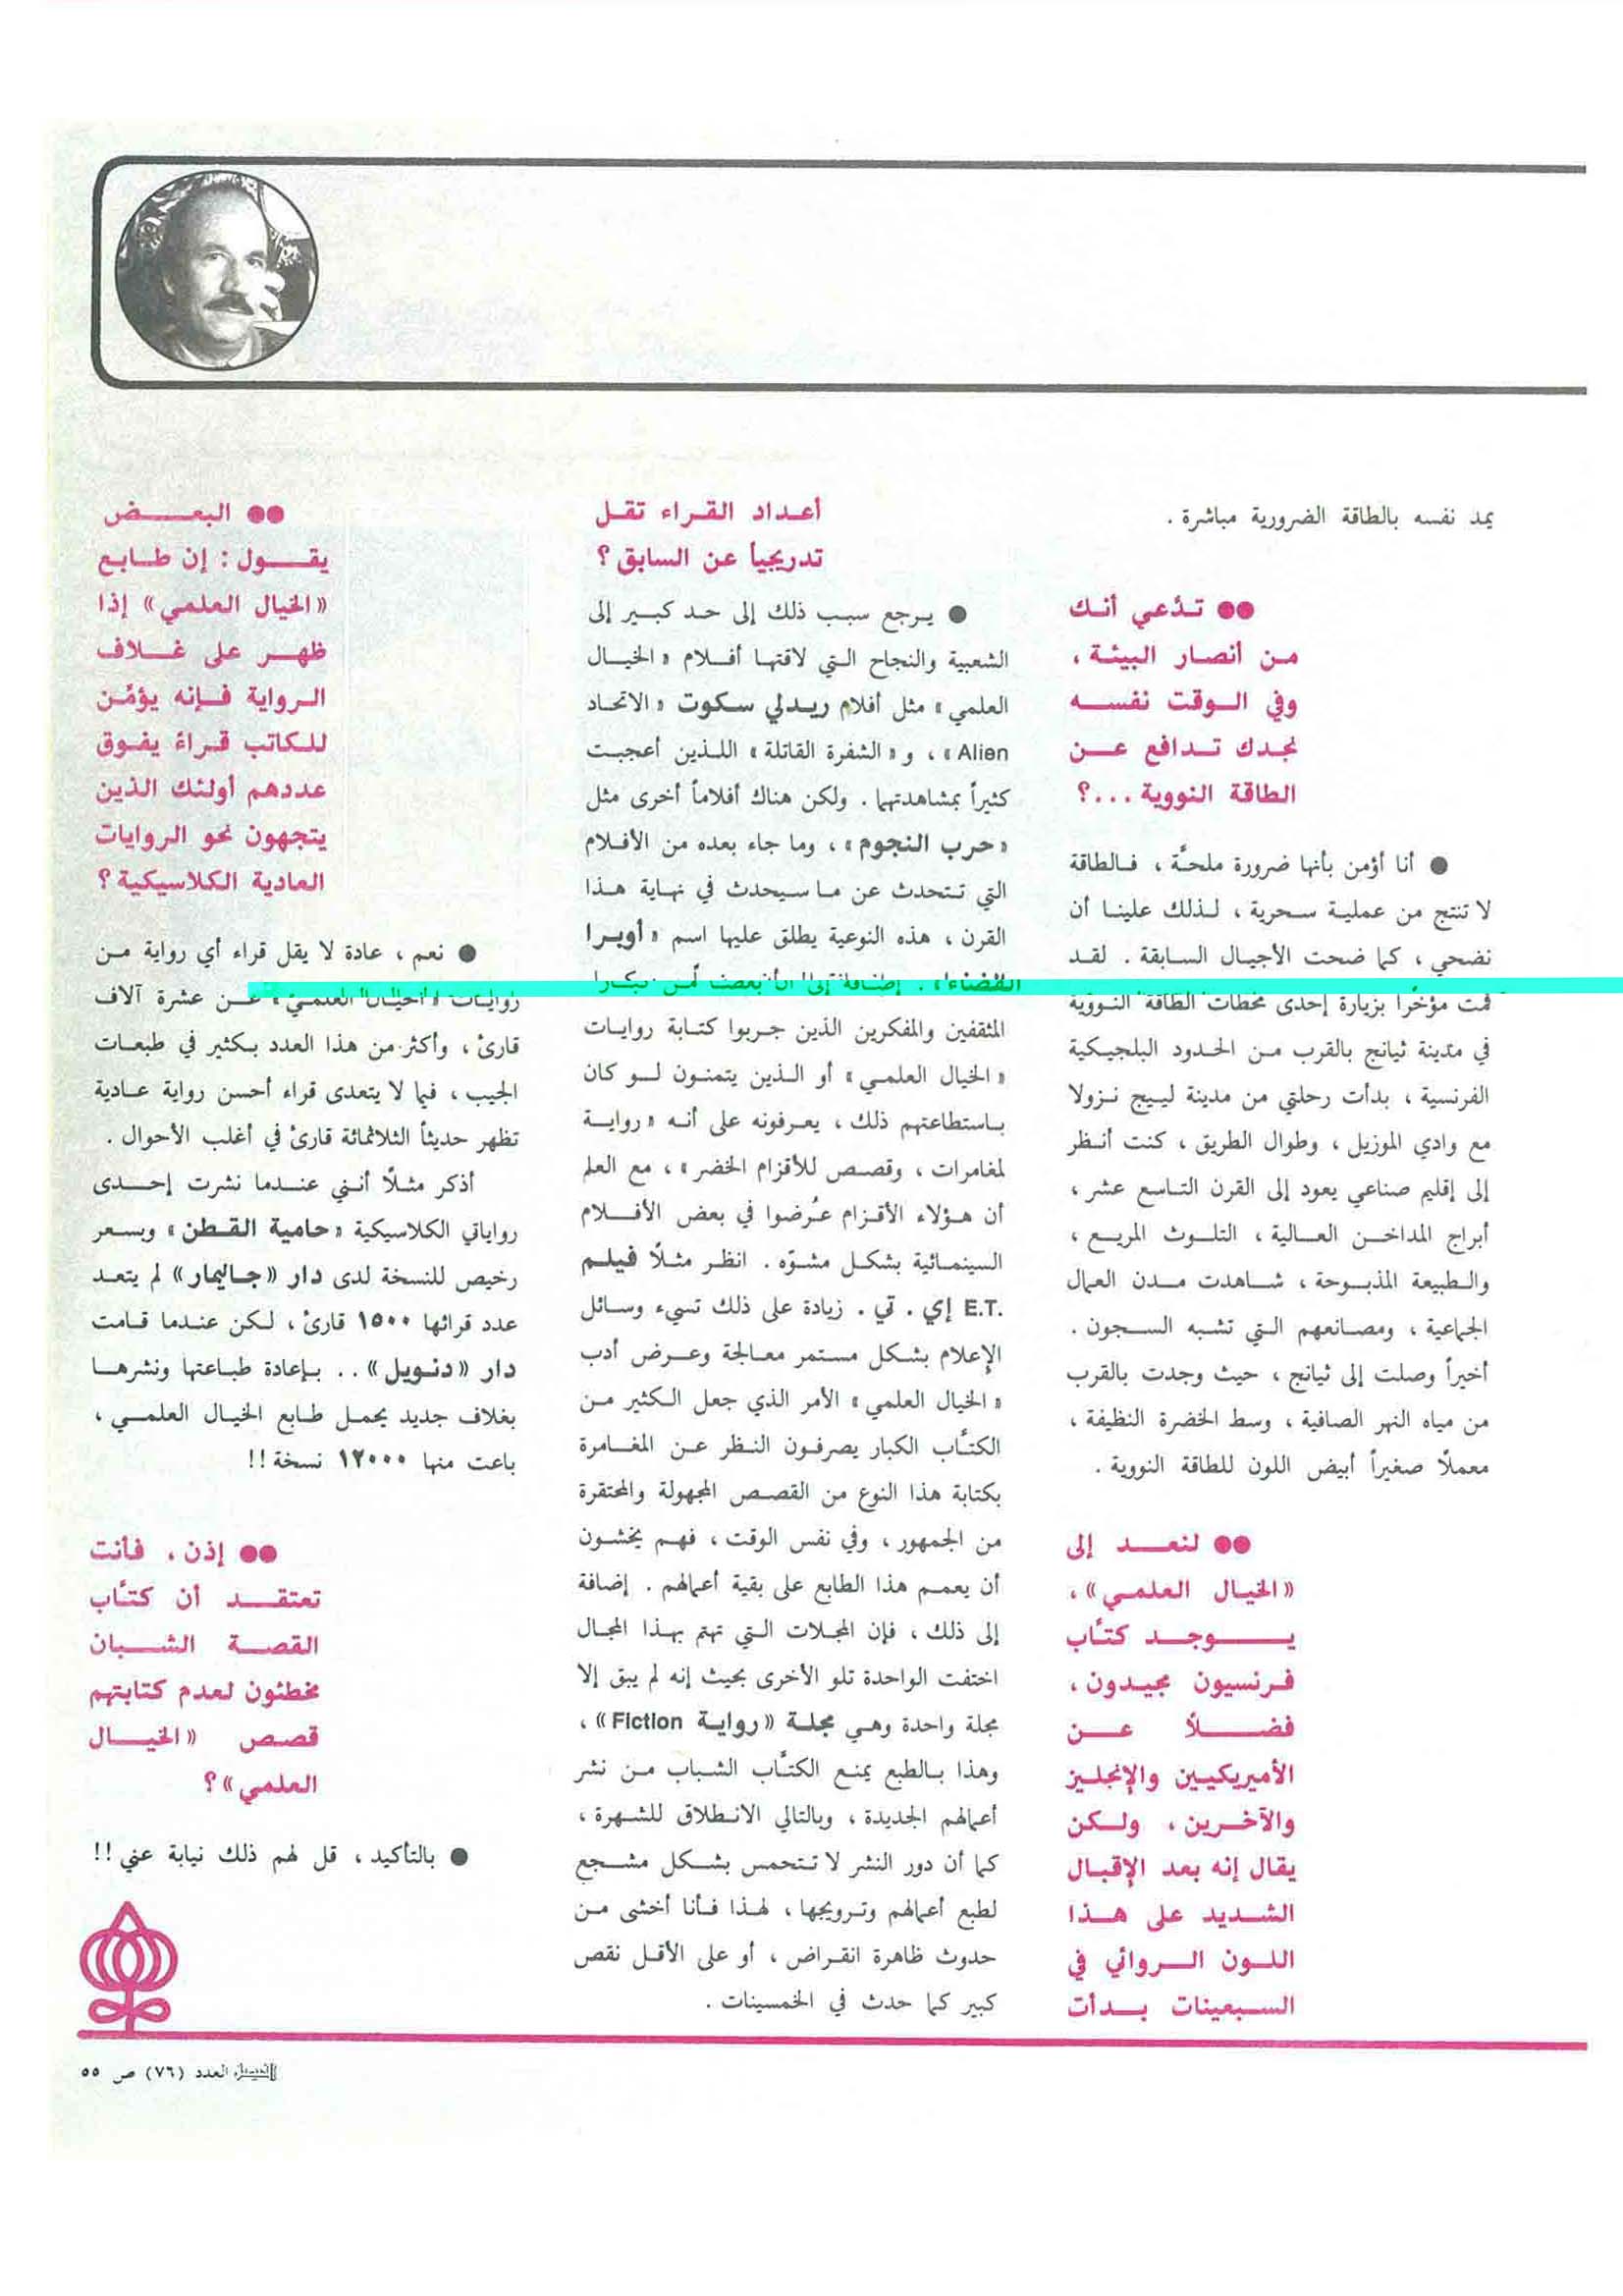 يمد نفسه بالطاقة الضرورية مباشرة .
●● تدّعي أنك
من أنصار البيئة ،
وفي الوقت نفسه
نجدك تدافع عن
الطاقة النووية ...؟
● أنا أؤمن بأنها ضرورة ملحَّة ، فالطاقة
لا تنتج من عملية سحرية ، لذلك علينا أن
نضحي ، كما ضحت الأجيال السابقة . لقد
قمت مؤخرًا بزيارة إحدى محطات الطاقة النووية
في مدينة ثيانج بالقرب من الحدود البلجيكية
الفرنسية ، بدأت رحلتي من مدينة لييج نزولا
مع وادي الموزيل ، وطوال الطريق ، كنت أنظر
إلى إقليم صناعي يعود إلى القرن التاسع عشر ،
أبراج المداخن العالية ، التلوث المريع ،
والطبيعة المذبوحة ، شاهدت مدن العمال
الجماعية ، ومصانعهم التي تشبه السجون .
أخيراً وصلت إلى ثيانج ، حيث وجدت بالقرب
من مياه النهر الصافية ، وسط الخضرة النظيفة ،
معملًا صغيراً أبيض اللون للطاقة النووية .
●● لنعد إلى
«الخيال العلمي» ،
يوجد كتّاب
فرنسيون مجيدون ،
فضلًا عن
الأميريكيين والإنجليز
والآخرين ، ولكن
يقال إنه بعد الإقبال
الشديد على هذا
اللون الروائي في
السبعينات بدأت
أعداد القراء تقل
تدريجياً عن السابق ؟
● يرجع سبب ذلك إلى حد كبير إلى
الشعبية والنجاح التي لاقتها أفلام «الخيال
العلمي» مثل أفلام ريدلي سكوت «الاتحاد
Alien» ، و «الشفرة القاتلة» اللذين أعجبت
كثيراً بمشاهدتهما . ولكن هناك أفلاماً أخرى مثل
«حرب النجوم» ، وما جاء بعده من الأفلام
التي تتحدث عن ما سيحدث في نهاية هذا
القرن ، هذه النوعية يطلق عليها اسم «أوبرا
الفضاء» . إضافة إلى أن بعضاً من كبار
المثقفين والمفكرين الذين جربوا كتابة روايات
«الخيال العلمي» أو الذين يتمنون لو كان
باستطاعتهم ذلك ، يعرفونه على أنه «رواية
لمغامرات ، وقصص للأقزام الخضر» ، مع العلم
أن هؤلاء الأقزام عُرضوا في بعض الأفلام
السينمائية بشكل مشوّه . انظر مثلًا فيلم
E.T. إي . تي . زيادة على ذلك تسيء وسائل
الإعلام بشكل مستمر معالجة وعرض أدب
«الخيال العلمي» الأمر الذي جعل الكثير من
الكتّاب الكبار يصرفون النظر عن المغامرة
بكتابة هذا النوع من القصص المجهولة والمحتقرة
من الجمهور ، وفي نفس الوقت ، فهم يخشون
أن يعمم هذا الطابع على بقية أعمالهم . إضافة
إلى ذلك ، فإن المجلات التي تهتم بهذا المجال
اختفت الواحدة تلو الأخرى بحيث إنه لم يبق إلا
مجلة واحدة وهي مجلة «رواية Fiction» ،
وهذا بالطبع يمنع الكتّاب الشباب من نشر
أعمالهم الجديدة ، وبالتالي الانطلاق للشهرة ،
كما أن دور النشر لا تتحمس بشكل مشجع
لطبع أعمالهم وترويجها ، لهذا فأنا أخشى من
حدوث ظاهرة انقراض ، أو على الأقل نقص
كبير كما حدث في الخمسينات .
●● البعض
يقول : إن طابع
«الخيال العلمي» إذا
ظهر على غلاف
الرواية فإنه يؤمّن
للكاتب قراءً يفوق
عددهم أولئك الذين
يتجهون نحو الروايات
العادية الكلاسيكية ؟
● نعم ، عادة لا يقل قراء أي رواية من
روايات «الخيال العلمي» عن عشرة آلاف
قارئ ، وأكثر من هذا العدد بكثير في طبعات
الجيب ، فيما لا يتعدى قراء أحسن رواية عادية
تظهر حديثاً الثلاثمائة قارئ في أغلب الأحوال .
أذكر مثلًا أنني عندما نشرت إحدى
رواياتي الكلاسيكية «حامية القطن» وبسعر
رخيص للنسخة لدى دار «جاليمار» لم يتعد
عدد قرائها ١٥٠٠ قارئ ، لكن عندما قامت
دار «دنويل» .. بإعادة طباعتها ونشرها
بغلاف جديد يحمل طابع الخيال العلمي ،
باعت منها ١٢٠٠٠ نسخة !!
●● إذن ، فأنت
تعتقد أن كتّاب
القصة الشبان
مخطئون لعدم كتابتهم
قصص «الخيال
العلمي» ؟
● بالتأكيد ، قل لهم ذلك نيابة عني !!
الفيصل العدد (٧٦) ص ٥٥